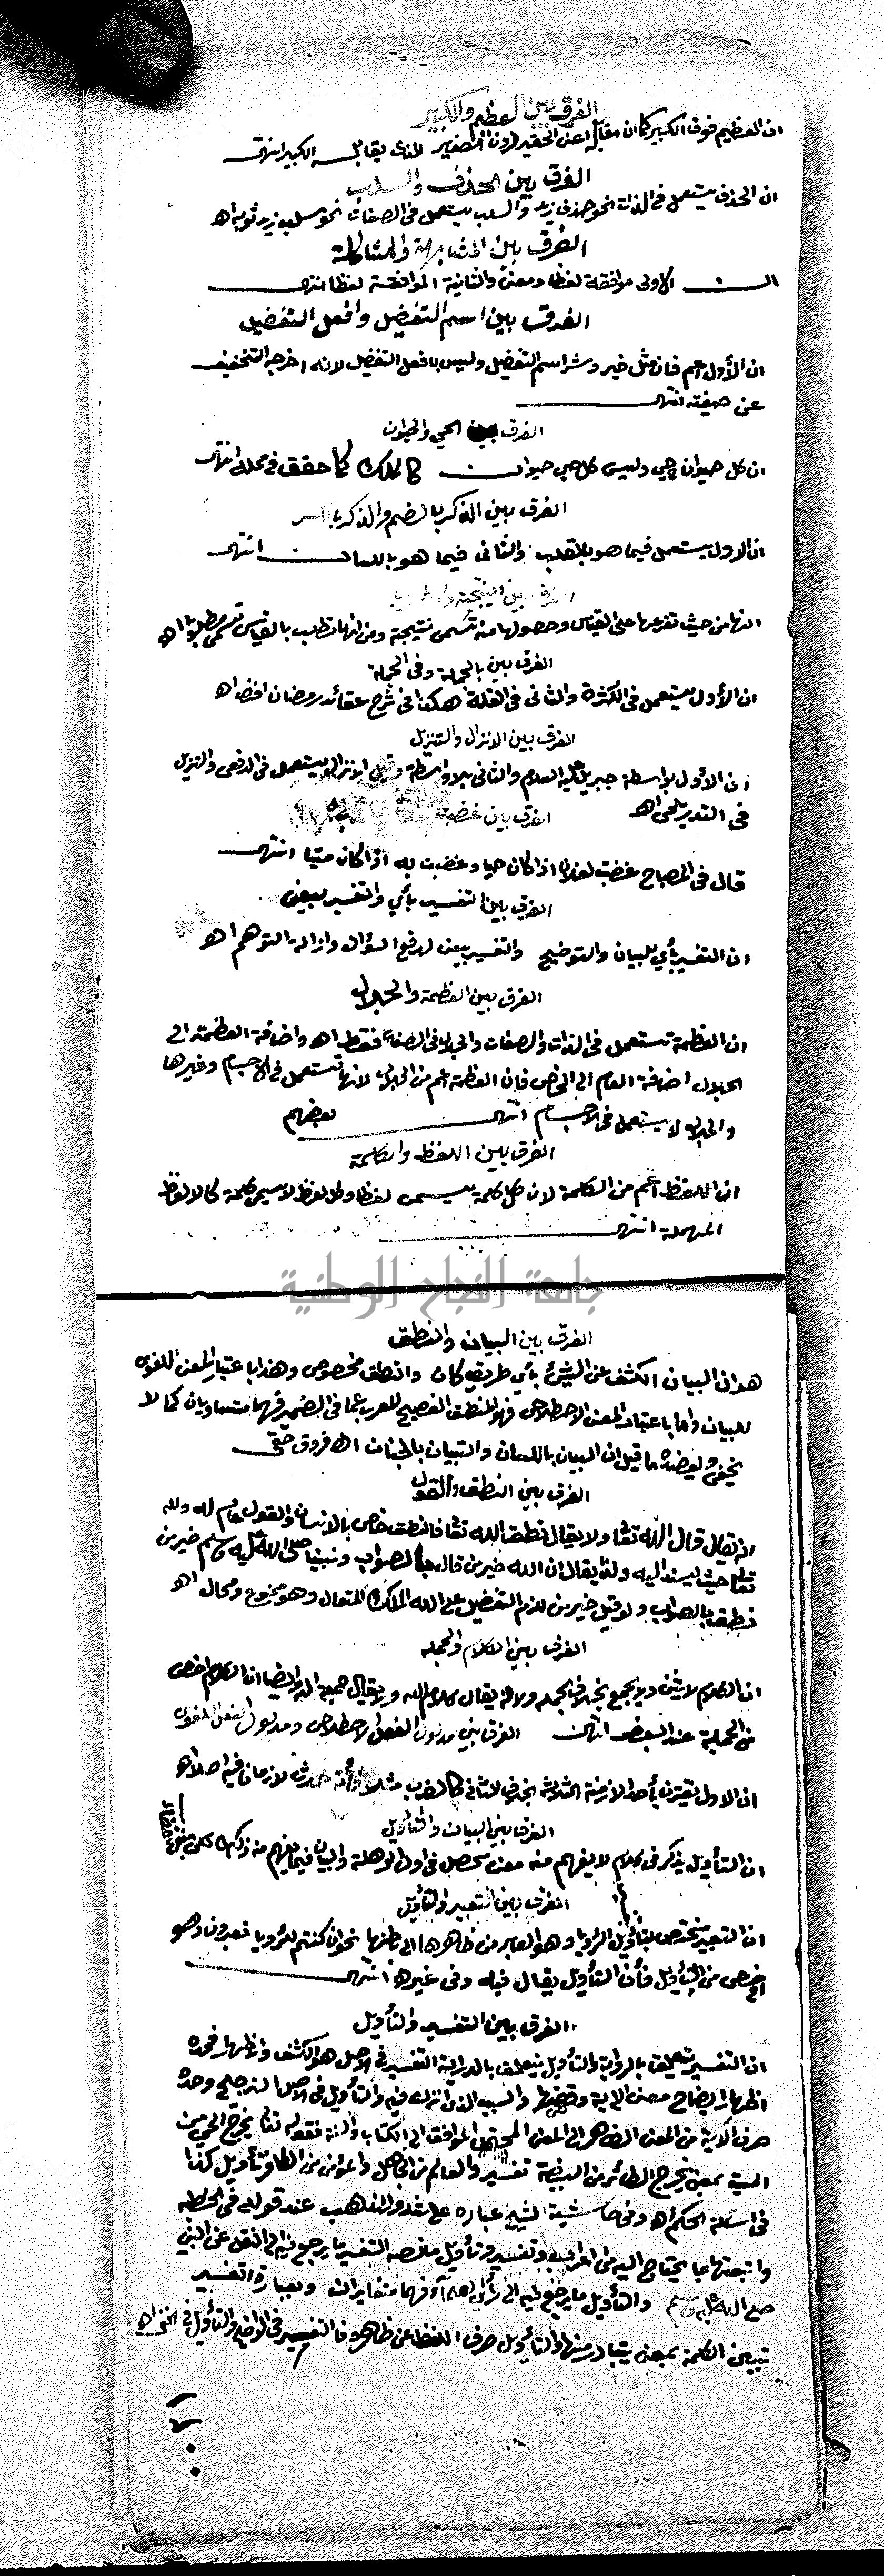 الفرق بين العظيم والكبير
ان العظيم فوق الكبير كما ان مقابله اعنى الحقير دون الصغير الذى يقابل به الكبير انتهى
الفرق بين الحذف والسلب
ان الحذف يستعمل فى الذات نحو حذف زيد والسلب يستعمل فى الصفات نحو سلب زيد ثوبه اه
الفرق بين المشابهة والمشاكلة
ان الاولى موافقة لفظا ومعنى والثانية الموافقة لفظا انتهى
الفرق بين اسم التفضيل وافعل التفضيل
ان الأول أعم فان مثل خير وشر اسم التفضيل وليس بافعل التفضيل لانه اخرجه التخفيف
عن صيغته انتهى
الفرق بين الحي والحيوان
ان كل حيوان حي وليس كل حي حيوان كالملك كما حقق فى محله انتهى
الفرق بين الذكر بالضم والذكر بالكسر
ان الاول يستعمل فيما هو بالقلب والثانى فيما هو باللسان انتهى
الفرق بين النتيجة
انها من حيث تفرعها على القياس وحصولها منه تسمى نتيجة ومن انها تطلب بالقياس تسمى مطلوبا اه
الفرق بين بالجملة وفى الجملة
ان الأول يستعمل فى الكثرة والثانى فى القلة هكذا فى شرح عقائد رمضان افندى اه
الفرق بين الانزال والتنزيل
ان الاول بواسطة جبريل عليه السلام والثانى بلا واسطة وقيل الانزال يستعمل فى الدفعى والتنزيل
فى التدريجى اه
الفرق بين غضبت
قال فى المصباح غضبت لفلان اذا كان حيا وغضبت به اذا كان ميتا انتهى
الفرق بين التفسير بأي والتفسير بيعنى
ان التفسير بأي للبيان والتوضيح والتفسير بيعنى لدفع السؤال وازالة التوهم اه
الفرق بين العظمة والجلال
ان العظمة تستعمل فى الذات والصفات والجلال فى الصفات فقط اه واضافة العظمة الى
الجلال اضافة العام الى الخاص فان العظمة أعم من الجلال لانها تستعمل فى الاجسام وغيرها
والجلال لا يستعمل فى الاجسام انتهى بعضهم
الفرق بين اللفظ والكلمة
ان اللفظ أعم من الكلمة لان كل كلمة يسمى لفظا وكل لفظ لا يسمى كلمة كالالفاظ
المهملة انتهى
جامعة النجاح الوطنية
الفرق بين البيان والنطق
هو ان البيان الكشف عن الشيئ بأي طريق كان والنطق مخصوص وهذا باعتبار المعنى اللغوى
للبيان واما باعتبار المعنى الاصطلاحى فهو المنطق الفصيح المعرب عما فى الضمير فهما متساويان كما لا
يخفى ويعضده ما قيل ان البيان باللسان والتبيان بالجنان اه فروق حقى
الفرق بين النطق والقول
انه يقال قال الله تعالى ولا يقال نطق الله تعالى فالنطق خاص بالانسان والقول عام له ولله
تعالى حيث يسند اليه ولذا يقال ان الله خير من قال بالصواب ونبينا صلى الله عليه وسلم خير من
نطق بالصواب ولو قيل خير من للزم التفضيل على الله الملك المتعال وهو ممنوع ومحال اه
الفرق بين الكلام والجملة
ان الكلام لا يثنى ولا يجمع بخلاف الجملة ولانه يقال كلام الله ولا يقال جملة الله وايضا ان الكلام اخص
من الجملة عند البعض انتهى الفرق بين مدلول الفعل الاصطلاحى ومدلول الفعل اللغوى
ان الاول يقترن بأحد الازمنة الثلاثة بخلاف الثانى كالضرب مثلا فأنه حدث لا زمان فيه اصلا اه
الفرق بين البيان والتأويل
ان التأويل يذكر فى كلام لا يفهم منه معنى محصل فى اول الوهلة والبيان فيما يفهم منه ذلك
الفرق بين التعبير والتأويل
ان التعبير مختص بتأويل الرؤيا وهو العابر من ظاهرها الى باطنها نحو ان كنتم للرؤيا تعبرون وهو
اخص من التأويل فأن التأويل يقال فيه وفى غيره انتهى
الفرق بين التفسير والتأويل
ان التفسير يتعلق بالرواية والتأويل يتعلق بالدراية التفسير فى الاصل هو الكشف والاظهار فحده
اظهار ايضاح معنى الاية والسبب الذى انزلت فيه والتأويل فى الاصل الترجيح وحده
صرف الآية من المعنى الظاهر الى المعنى المحتمل الموافق الى الكتاب والسنة فقوله تعالى يخرج الحي من
الميت بمعنى يخرج الطائر من البيضة تفسير والعالم من الجاهل والمؤمن من الكافر تأويل كذا
فى اسئلة الحكم اه وفى حاشية الشيخ عباره على شذور الذهب عند قوله فى الخطبة
واتبعتها بما يحتاج اليه من اعراب وتفسير وتأويل ما نصه التفسير ما يرجع فيه الى النقل عن النبي
صلى الله عليه وسلم والتأويل ما يرجع فيه الى رأي فهما متغايران وبعبارة التفسير
تبيين الكلمة بمعنى يتبادر منها والتأويل صرف اللفظ عن ظاهره فالتفسير فى الواضح والتأويل فى الخفى اه